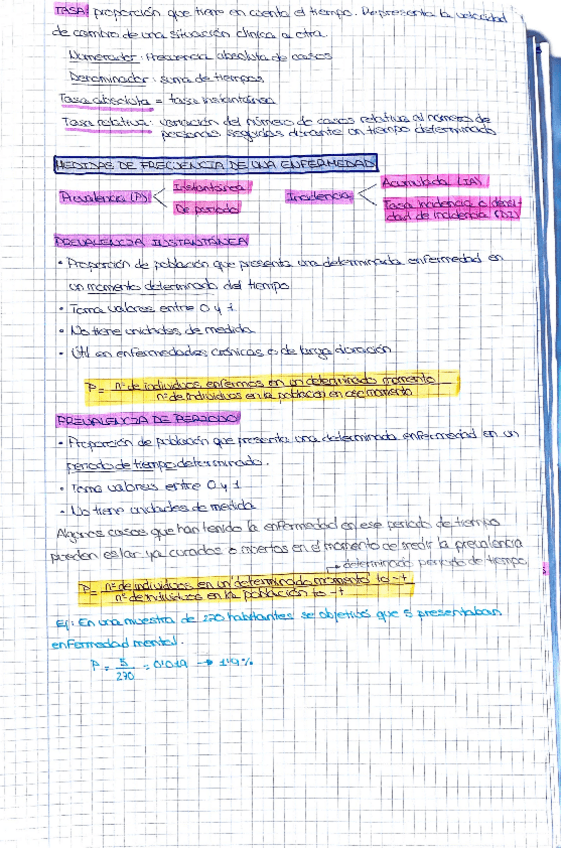 TASA: proporción que tiene en cuenta el tiempo. Representa la velocidad
de cambio de una situación clínica a otra.
Numerador: Frecuencia absoluta de casos
Denominador: suma de tiempos.
Tasa absoluta = tasa instantánea
Tasa relativa: variación del número de casos relativa al número de
personas seguidas durante un tiempo determinado
MEDIDAS DE FRECUENCIA DE UNA ENFERMEDAD
Prevalencia (P) < Instantánea
De periodo
Incidencia < Acumulada (IA)
Tasa incidencia o densi-
dad de incidencia (DI)
PREVALENCIA INSTANTÁNEA
• Proporción de población que presenta una determinada enfermedad en
un momento determinado del tiempo
• Toma valores entre 0 y 1
• No tiene unidades de medida
• Útil en enfermedades crónicas o de larga duración
P = nº de individuos enfermos en un determinado momento
nº de individuos en la población en ese momento
PREVALENCIA DE PERIODO
• Proporción de población que presenta una determinada enfermedad en un
periodo de tiempo determinado.
• Toma valores entre 0 y 1
• No tiene unidades de medida
Algunos casos que han tenido la enfermedad en ese periodo de tiempo
pueden estar ya curados o muertos en el momento de medir la prevalencia
→ determinado periodo de tiempo
P = nº de individuos en un determinado momento to - t
nº de individuos en la población to - t
Ej: En una muestra de 270 habitantes se objetivó que 5 presentaban
enfermedad mental.
P = 5 = 0'019 → 1'9%
270